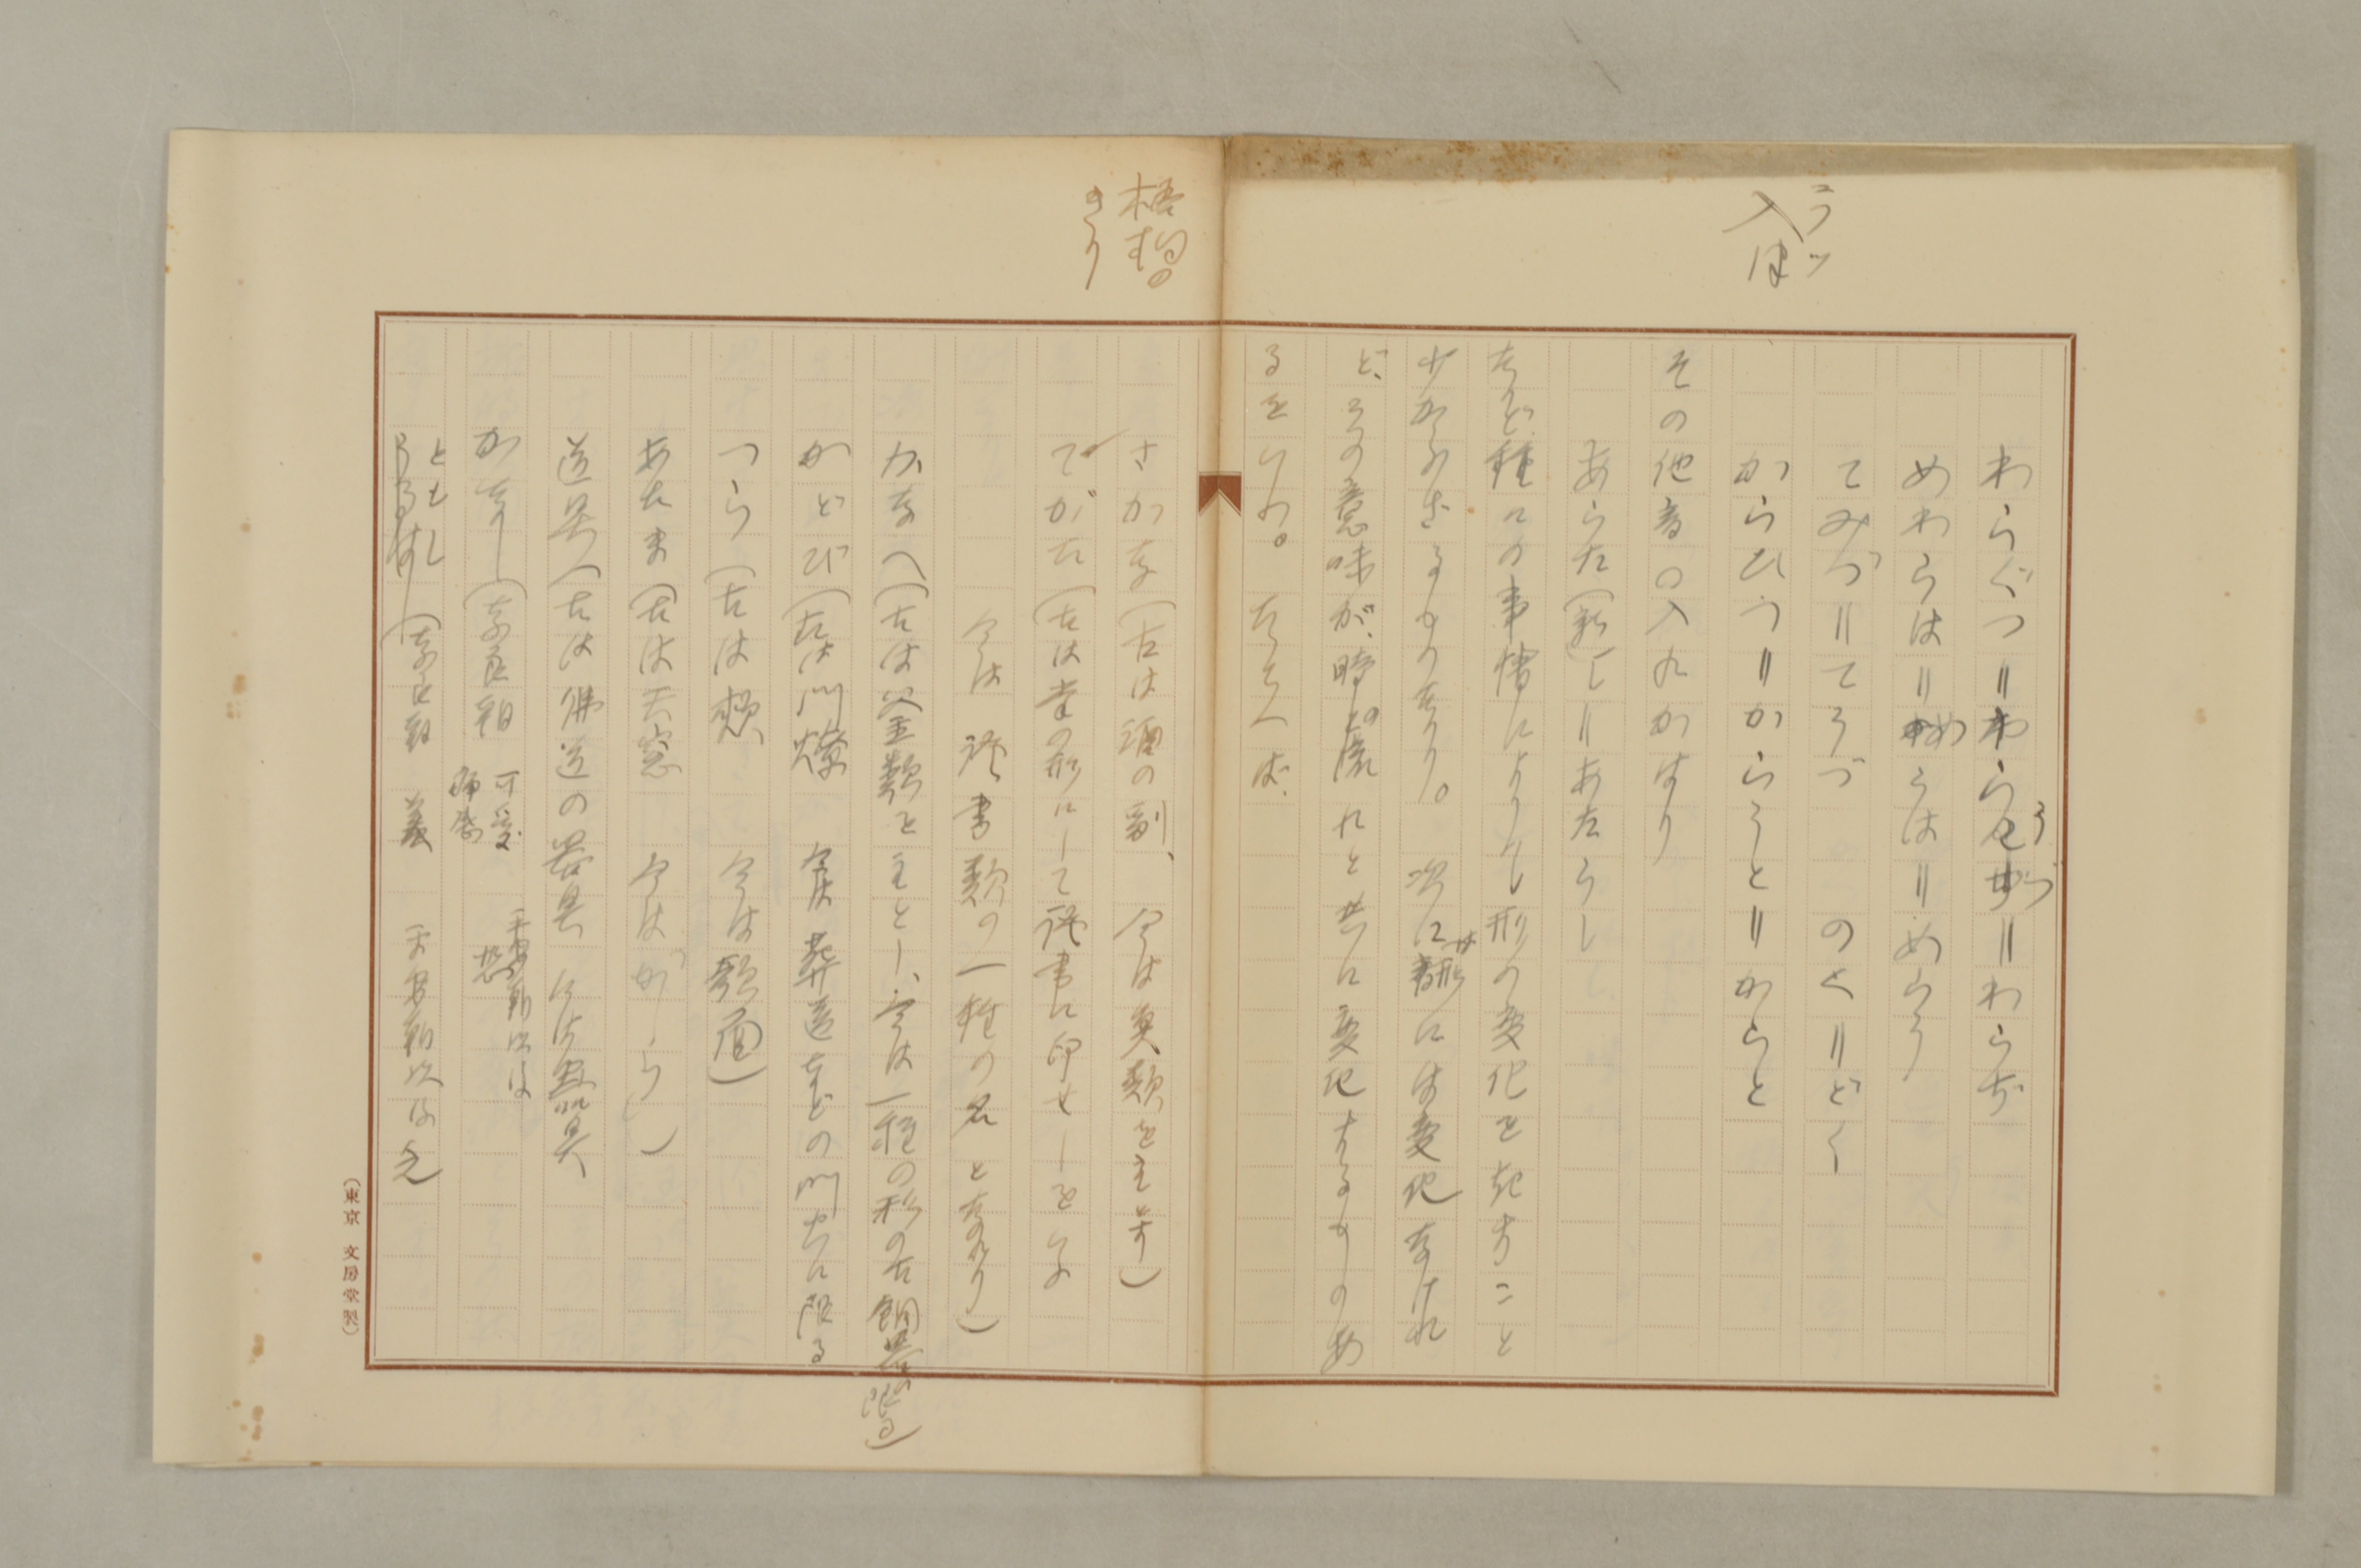 わらぐつ＝わらうづ＝わらぢ
めわらは＝めらは＝めらう
てみづ＝てうづ　のく＝どく
からひつ＝からうと＝からと
その他音の入れかはり
あらた（新）し＝あたらし
など種々の事情によりて形の変化を起すこと
少からざるものなり。次に語形には変化なけれ
ど、その意味が、時の流れと共に変化するものあ
るをいふ。たとへば、
さかな（古は酒の副、　今は魚類を主す）
てがた（古は掌の形にして証書に印せしをいふ
今は証書類の一種の名となれり）
かなへ（古は釜類を主とし、今は一種の形の古銅器に限る）
かどび（古は門燎　今は葬送などの門火に限る
つら（古は頬　今は顔面）
あたま（古は天窓　今はがしら）
道具（古は佛道の器具
かなし（奈良朝　可愛
平安朝以後
悲
ともし
（奈良朝　義　平安朝以後
（東京　文房堂製）